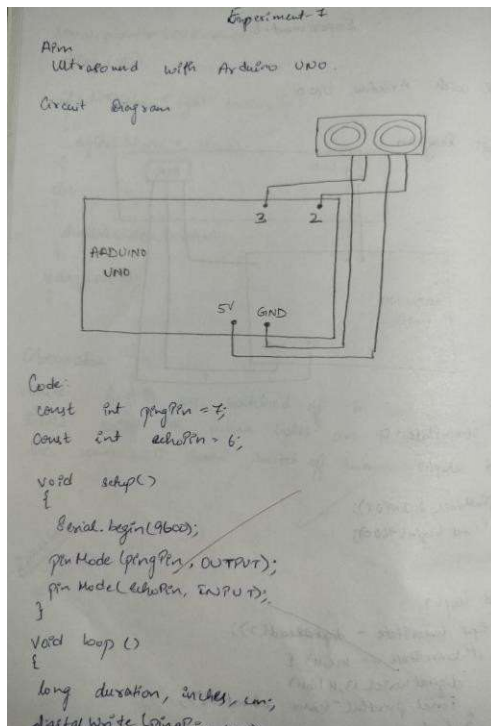 Experiment-1
Aim
Ultrasound with Arduino UNO.
Circuit Diagram
3 2
ARDUINO
UNO
5V GND
Code:
const int pingPin = 7;
const int echoPin = 6;
void setup()
{
Serial.begin(9600);
pinMode (pingPin, OUTPUT);
pinMode (echoPin, INPUT);
}
void loop ()
{
long duration, inches, cm;
digital Write (pingP